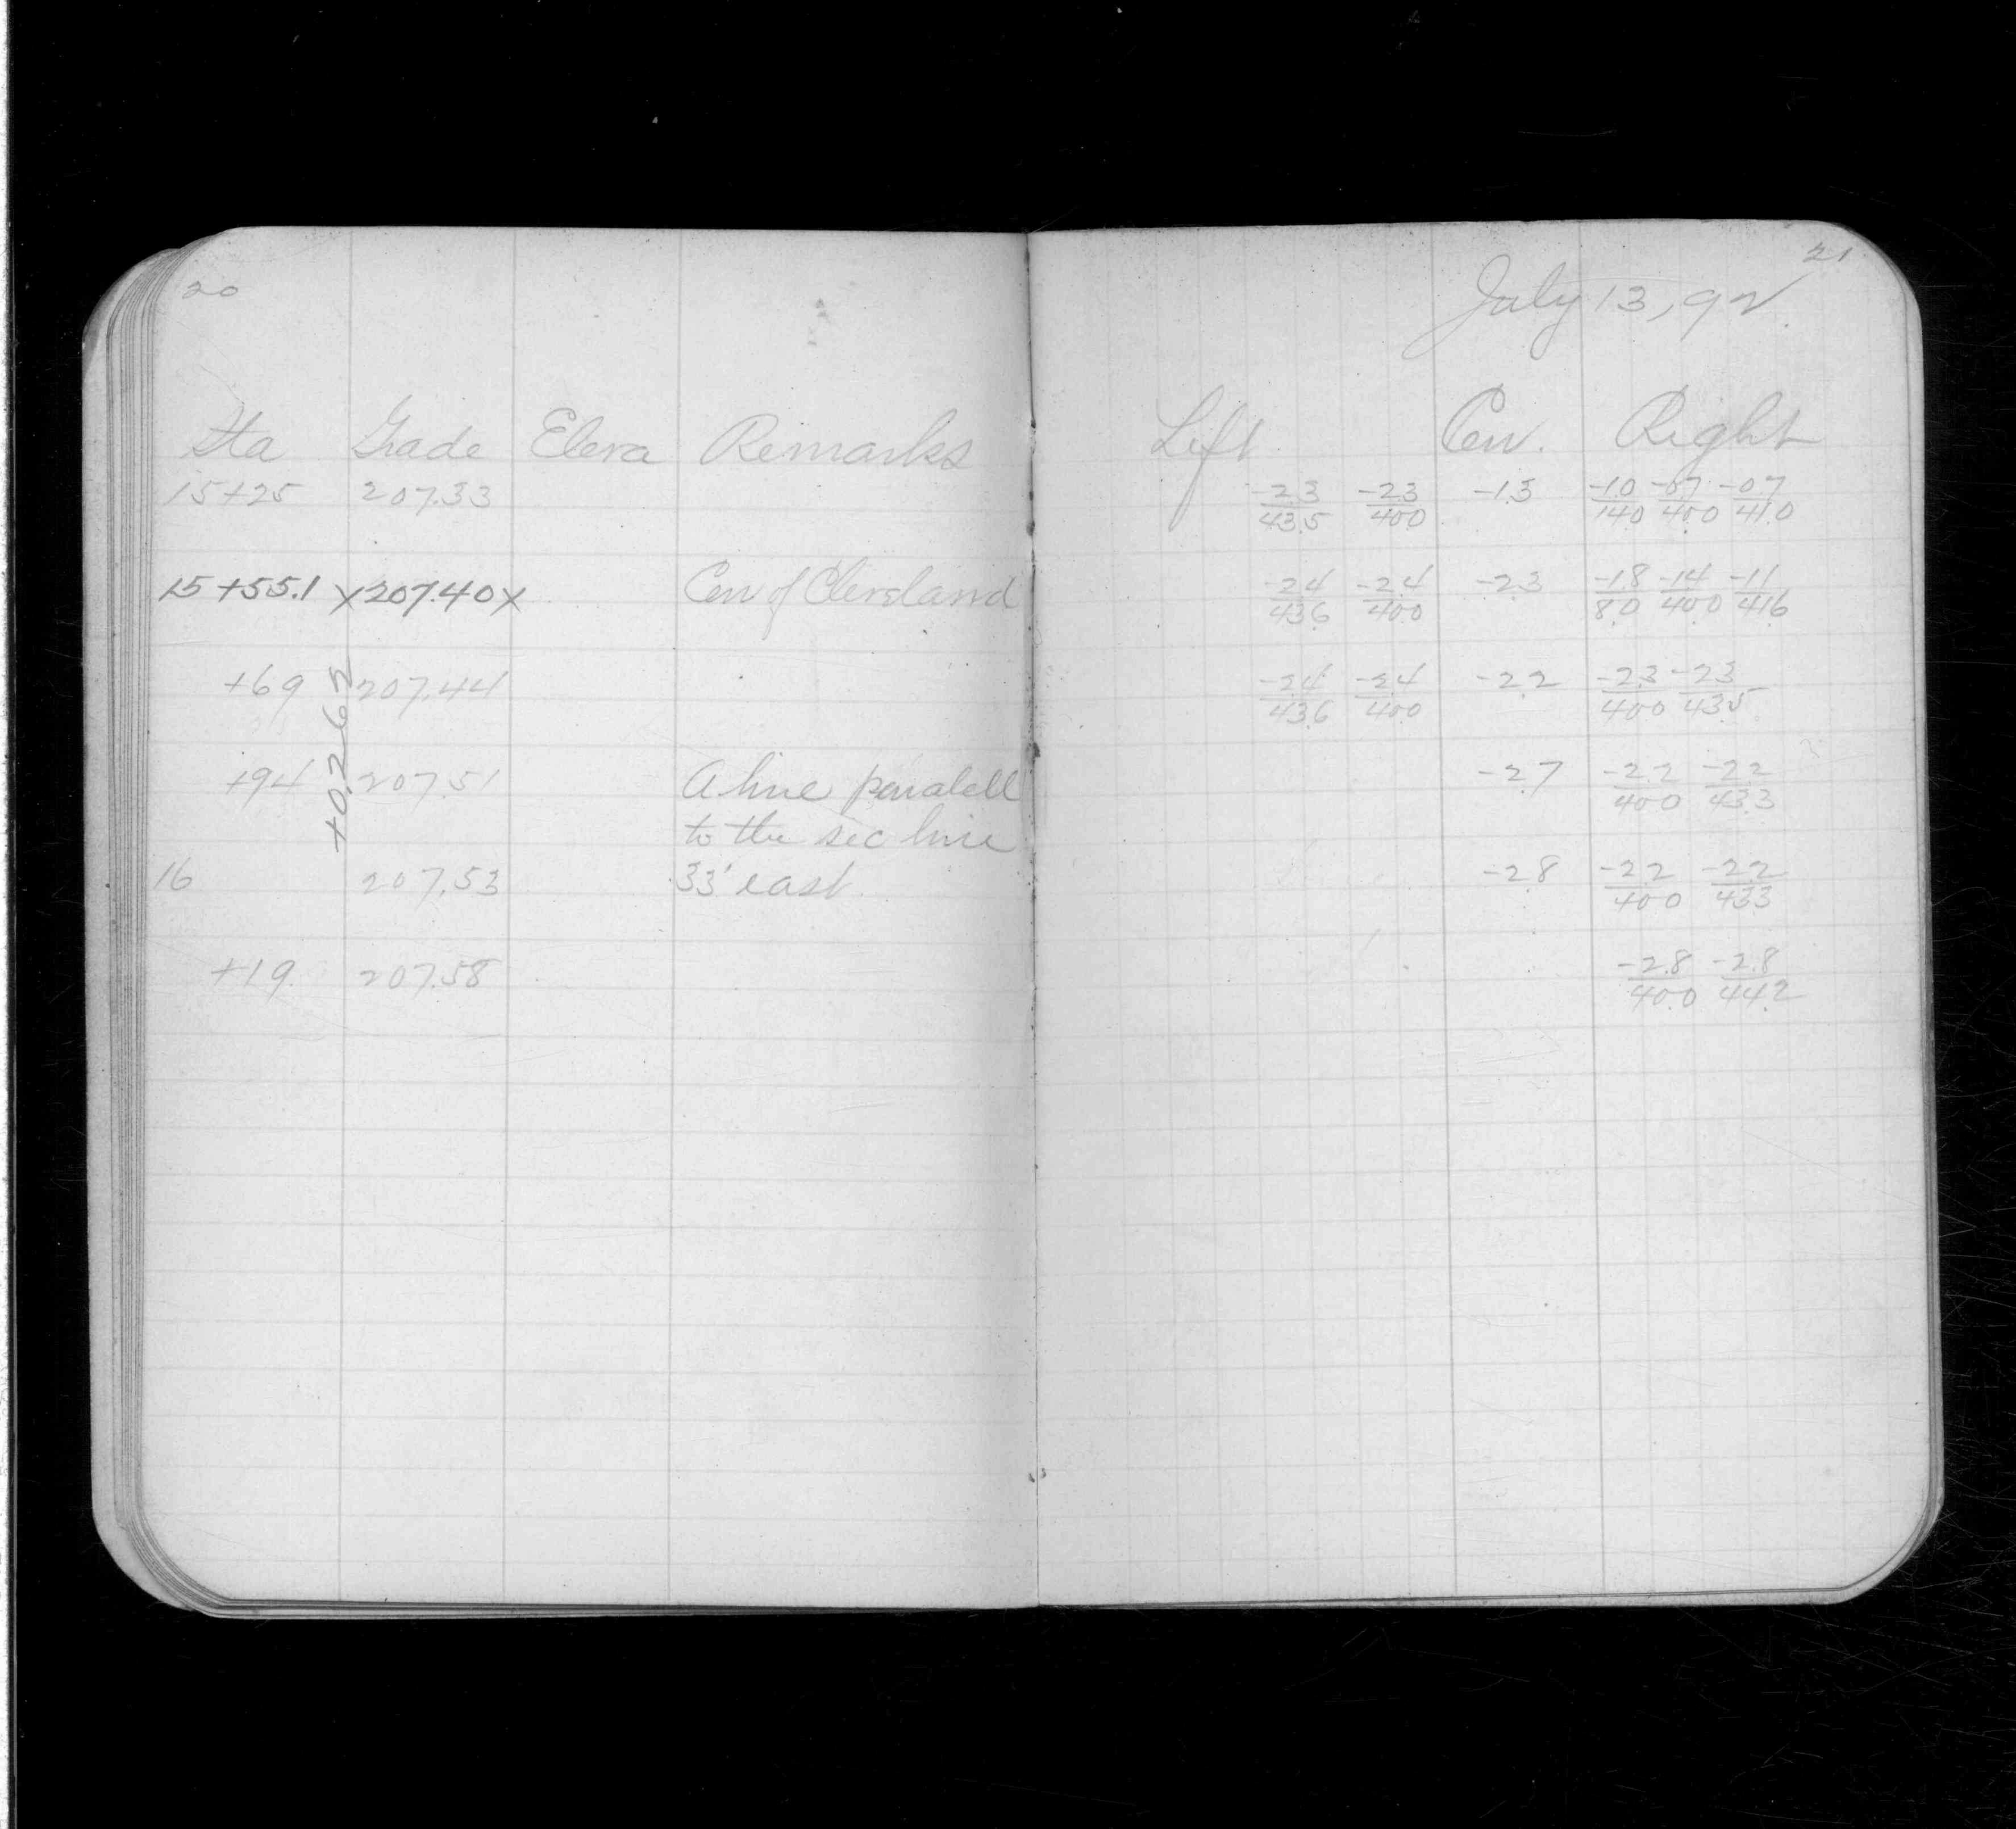 20
Sta Grade Eleva Remarks
15+25 207.33
15+55.1 x 207.40 x Cen of Cleveland
+69 207.44
+0.262
+94 207.51 A line paralell
to the sec line
16 207.53 33' east
+19 207.58
21
July 13, 92.
Left Cen. Right
-2.3/43.5 -2.3/40.0 -1.3 -1.0/14.0 -0.7/40.0 -0.7/41.0
-2.4/43.6 -2.4/40.0 -2.3 -1.8/8.0 -1.4/40.0 -1.1/41.6
-2.4/43.6 -2.4/40.0 -2.2 -2.3/40.0 -2.3/43.5
-2.7 -2.2/40.0 -2.2/43.3
-2.8 -2.2/40.0 -2.2/43.3
-2.8/40.0 -2.8/44.2